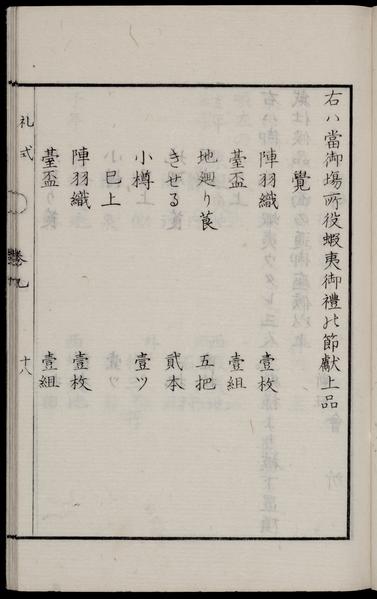 右ハ當御場所役蝦夷御禮之節獻上品
覺
陣羽織 壹枚
臺盃 壹組
地廻り莨 五把
きせる 貳本
小樽 壹ツ
〆 巳上
陣羽織 壹枚
臺盃 壹組
礼式 巻九 十八